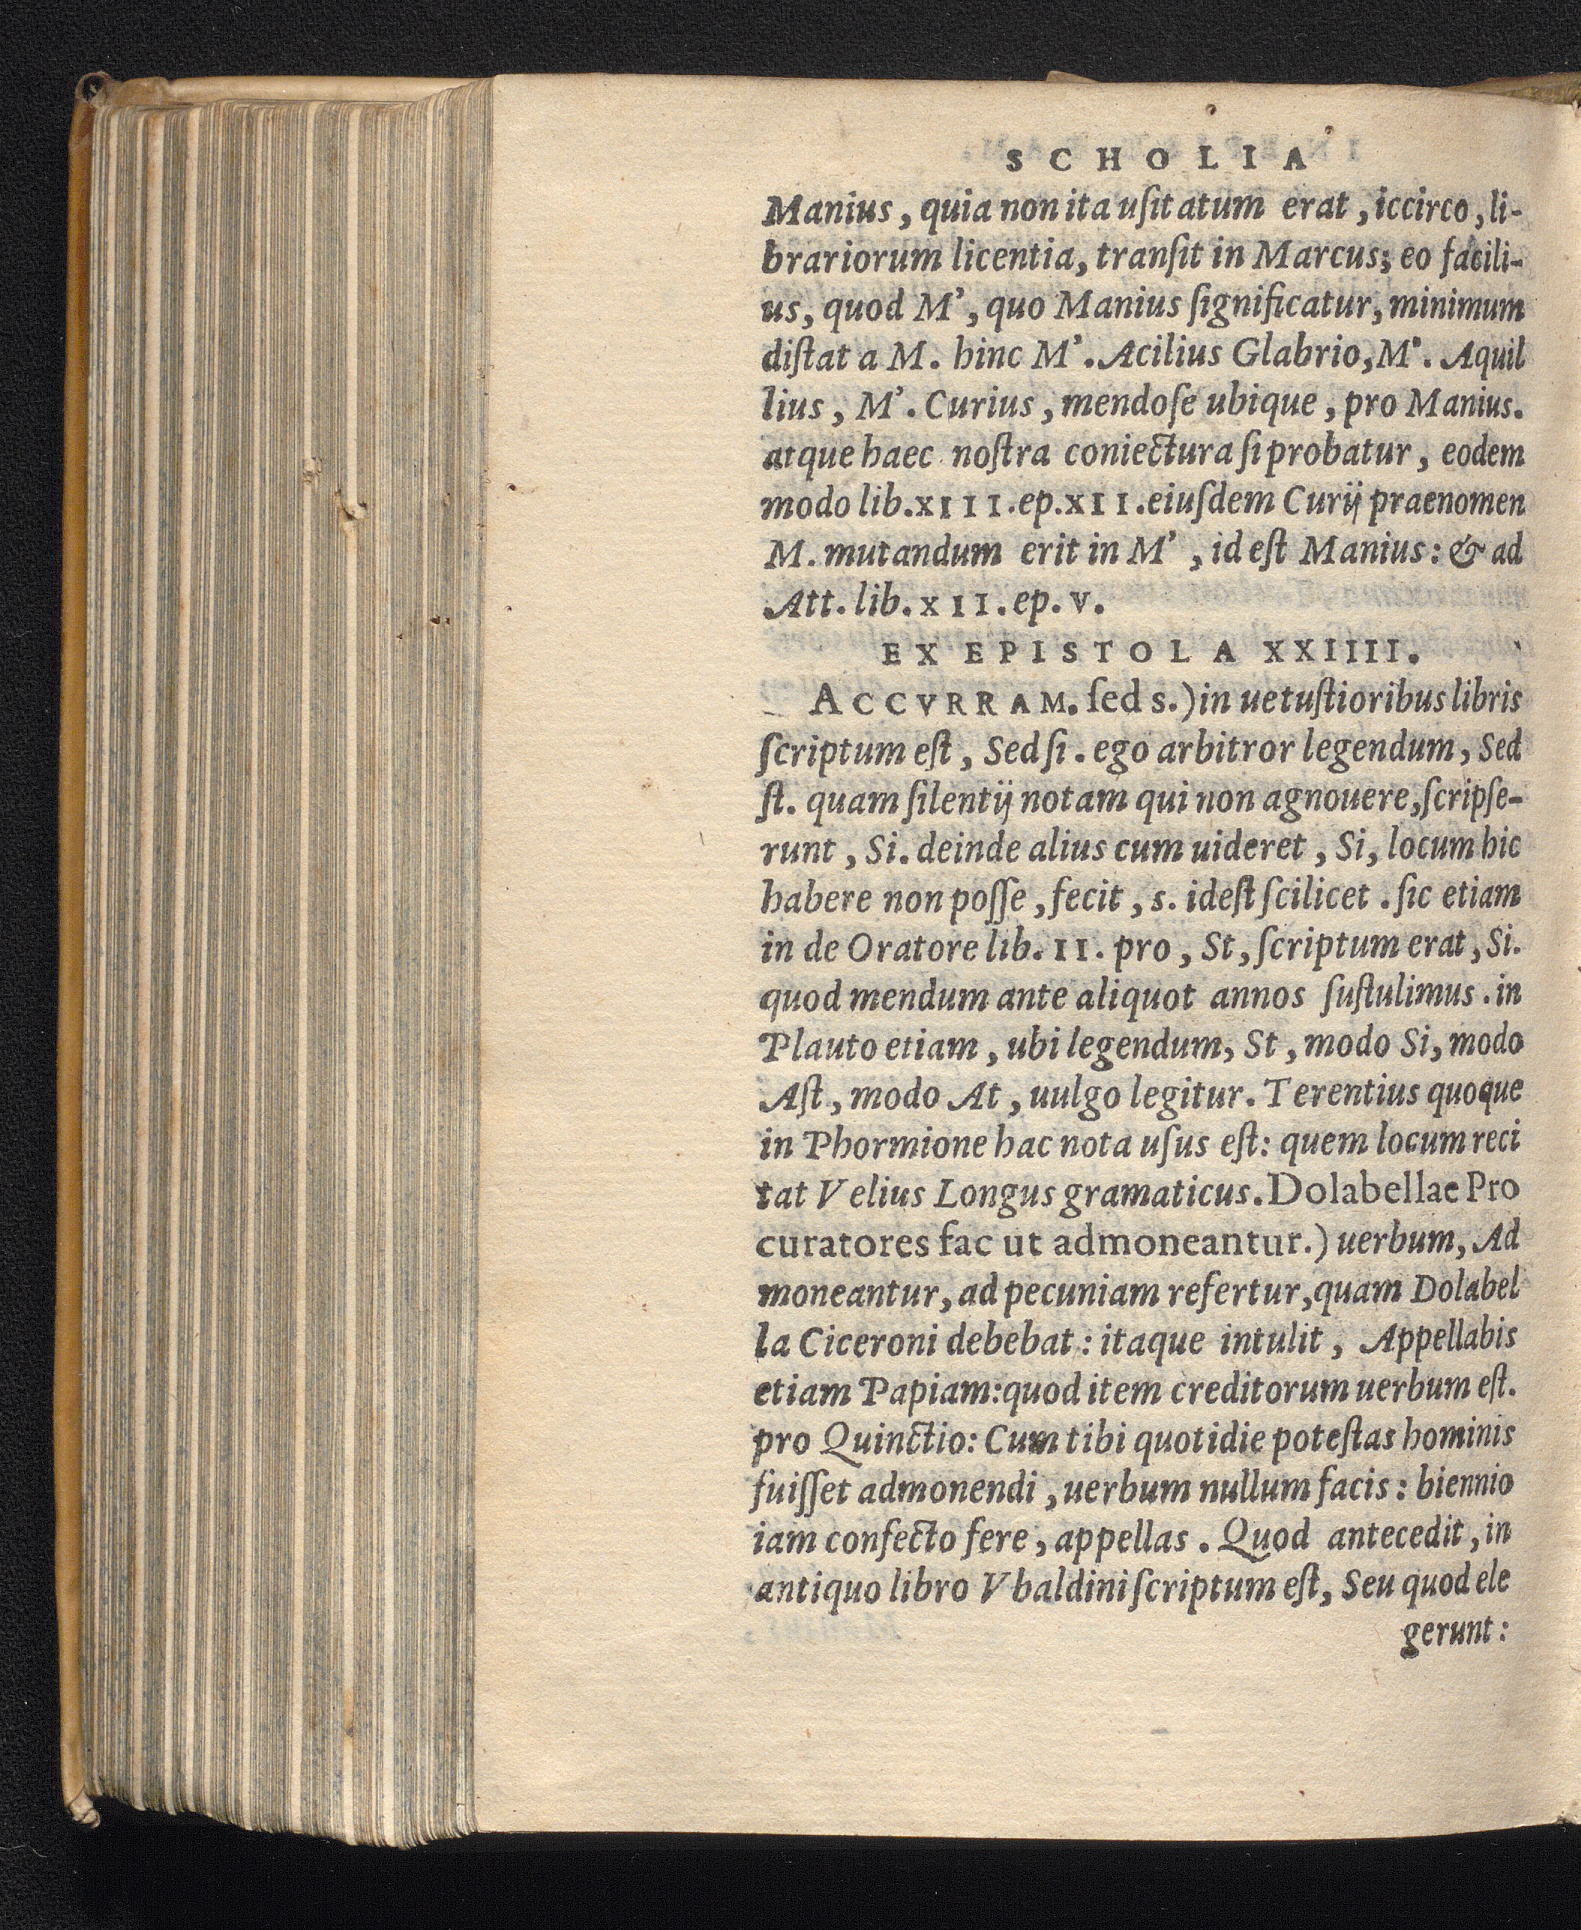 SCHOLIA
Manius, quia non ita uſitatum erat, iccirco, li-
brariorum licentia, tranſit in Marcus; eo facili-
us, quod M’, quo Manius ſignificatur, minimum
diſtat a M. hinc M’. Acilius Glabrio, M’. Aquil
lius, M’. Curius, mendoſe ubique, pro Manius.
atque haec noſtra coniectura ſi probatur, eodem
modo lib. XIII. ep. XII. eiuſdem Curij praenomen
M. mutandum erit in M’, id eſt Manius: & ad
Att. lib. XII. ep. V.
EX EPISTOLA XXIIII.
ACCVRRAM. ſed s.) in uetuſtioribus libris
ſcriptum eſt, Sed ſi. ego arbitror legendum, Sed
ſt. quam ſilentij notam qui non agnouere, ſcripſe-
runt, Si. deinde alius cum uideret, Si, locum hic
habere non poſſe, fecit, s. ideſt ſcilicet. ſic etiam
in de Oratore lib. II. pro, St, ſcriptum erat, Si.
quod mendum ante aliquot annos ſuſtulimus. in
Plauto etiam, ubi legendum, St, modo Si, modo
Aſt, modo At, uulgo legitur. Terentius quoque
in Phormione hac nota uſus eſt: quem locum reci
tat Velius Longus gramaticus. Dolabellae Pro
curatores fac ut admoneantur.) uerbum, Ad
moneantur, ad pecuniam refertur, quam Dolabel
la Ciceroni debebat: itaque intulit, Appellabis
etiam Papiam: quod item creditorum uerbum eſt.
pro Quinctio: Cum tibi quotidie poteſtas hominis
fuiſſet admonendi, uerbum nullum facis: biennio
iam confecto fere, appellas. Quod antecedit, in
antiquo libro Vbaldini ſcriptum eſt, Seu quod ele
gerunt: